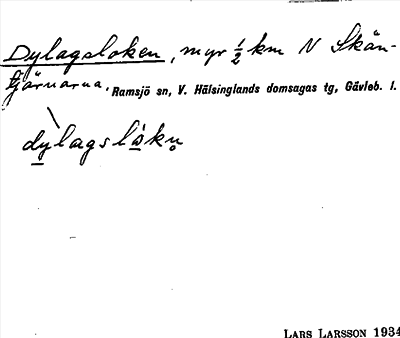 Dylagsloken, myr ½ km N Skän-
tjärnarna. Ramsjö sn, V. Hälsinglands domsagas tg, Gävleb. l.
dylagslåkn̥
LARS LARSSON 1934